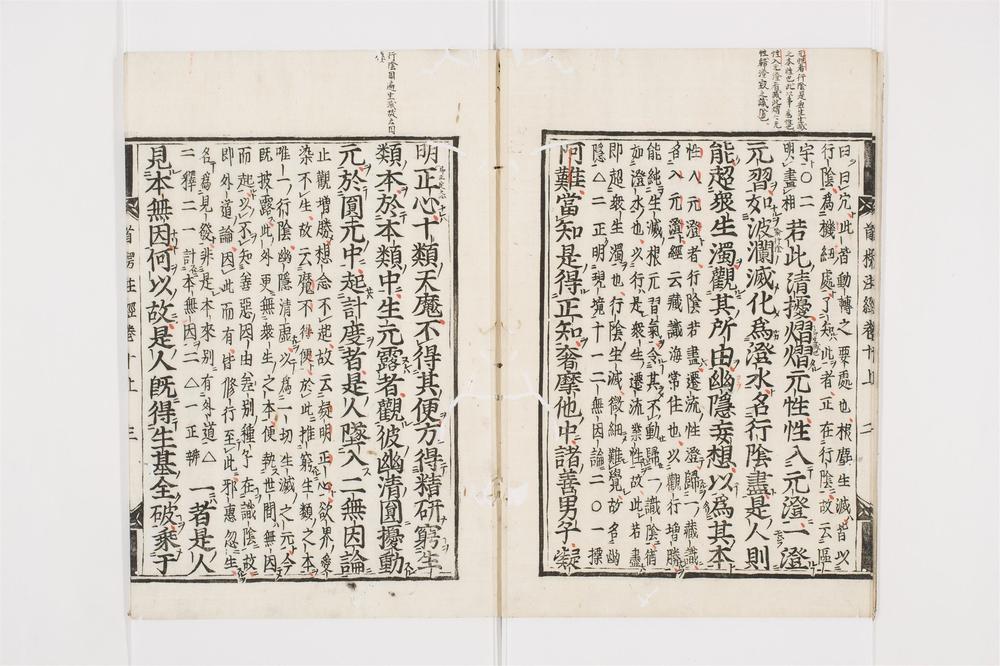 曰曰宂此皆動轉之要處也根塵生滅皆以
行陰爲機紐處了知此者正在行陰故云區
宇○二
明盡相
若此清擾熠熠元性性入元澄一澄
元習如波瀾滅化爲澄水名行陰盡是人則
能超衆生濁觀其所由幽隱妄想以爲其本
性入元澄者行陰若盡遷流性澄歸一藏識
名入元澄經云藏識海常住也以觀行增勝
能純生滅根元習氣令其不動歸一識陰偤
如澄水也以行是衆生遷流業性故此若盡
即超衆生濁也行陰生滅微細難覺故名幽
隱△二正明現境十一二無因論二○一揲
阿難當知是得正知奢摩他中諸善男子凝
明正心十類天魔不得其便方得精研窮生
類本於本類中生元露者觀彼幽清圓擾動
元於圓元中起計度者是人墜入二無因論
止觀增勝想念不起故云凝明正心欲界愛
染不生故云魔不得便於此推窮生類之本
唯一行陰幽隱清虛以爲一切生滅之元今
既披露此外更無衆生之本便執世間無因
而起以不知善惡因由差別種子在識陰故
即外道論因此而有皆修行至此邪惠忽生
名爲見發非是本來別有外道△
二釋二一計本無因二△一正辨
一者是人
見本無因何以故是人既得生基全破乘于
首楞注經卷十上 二
首楞注經卷十上 三